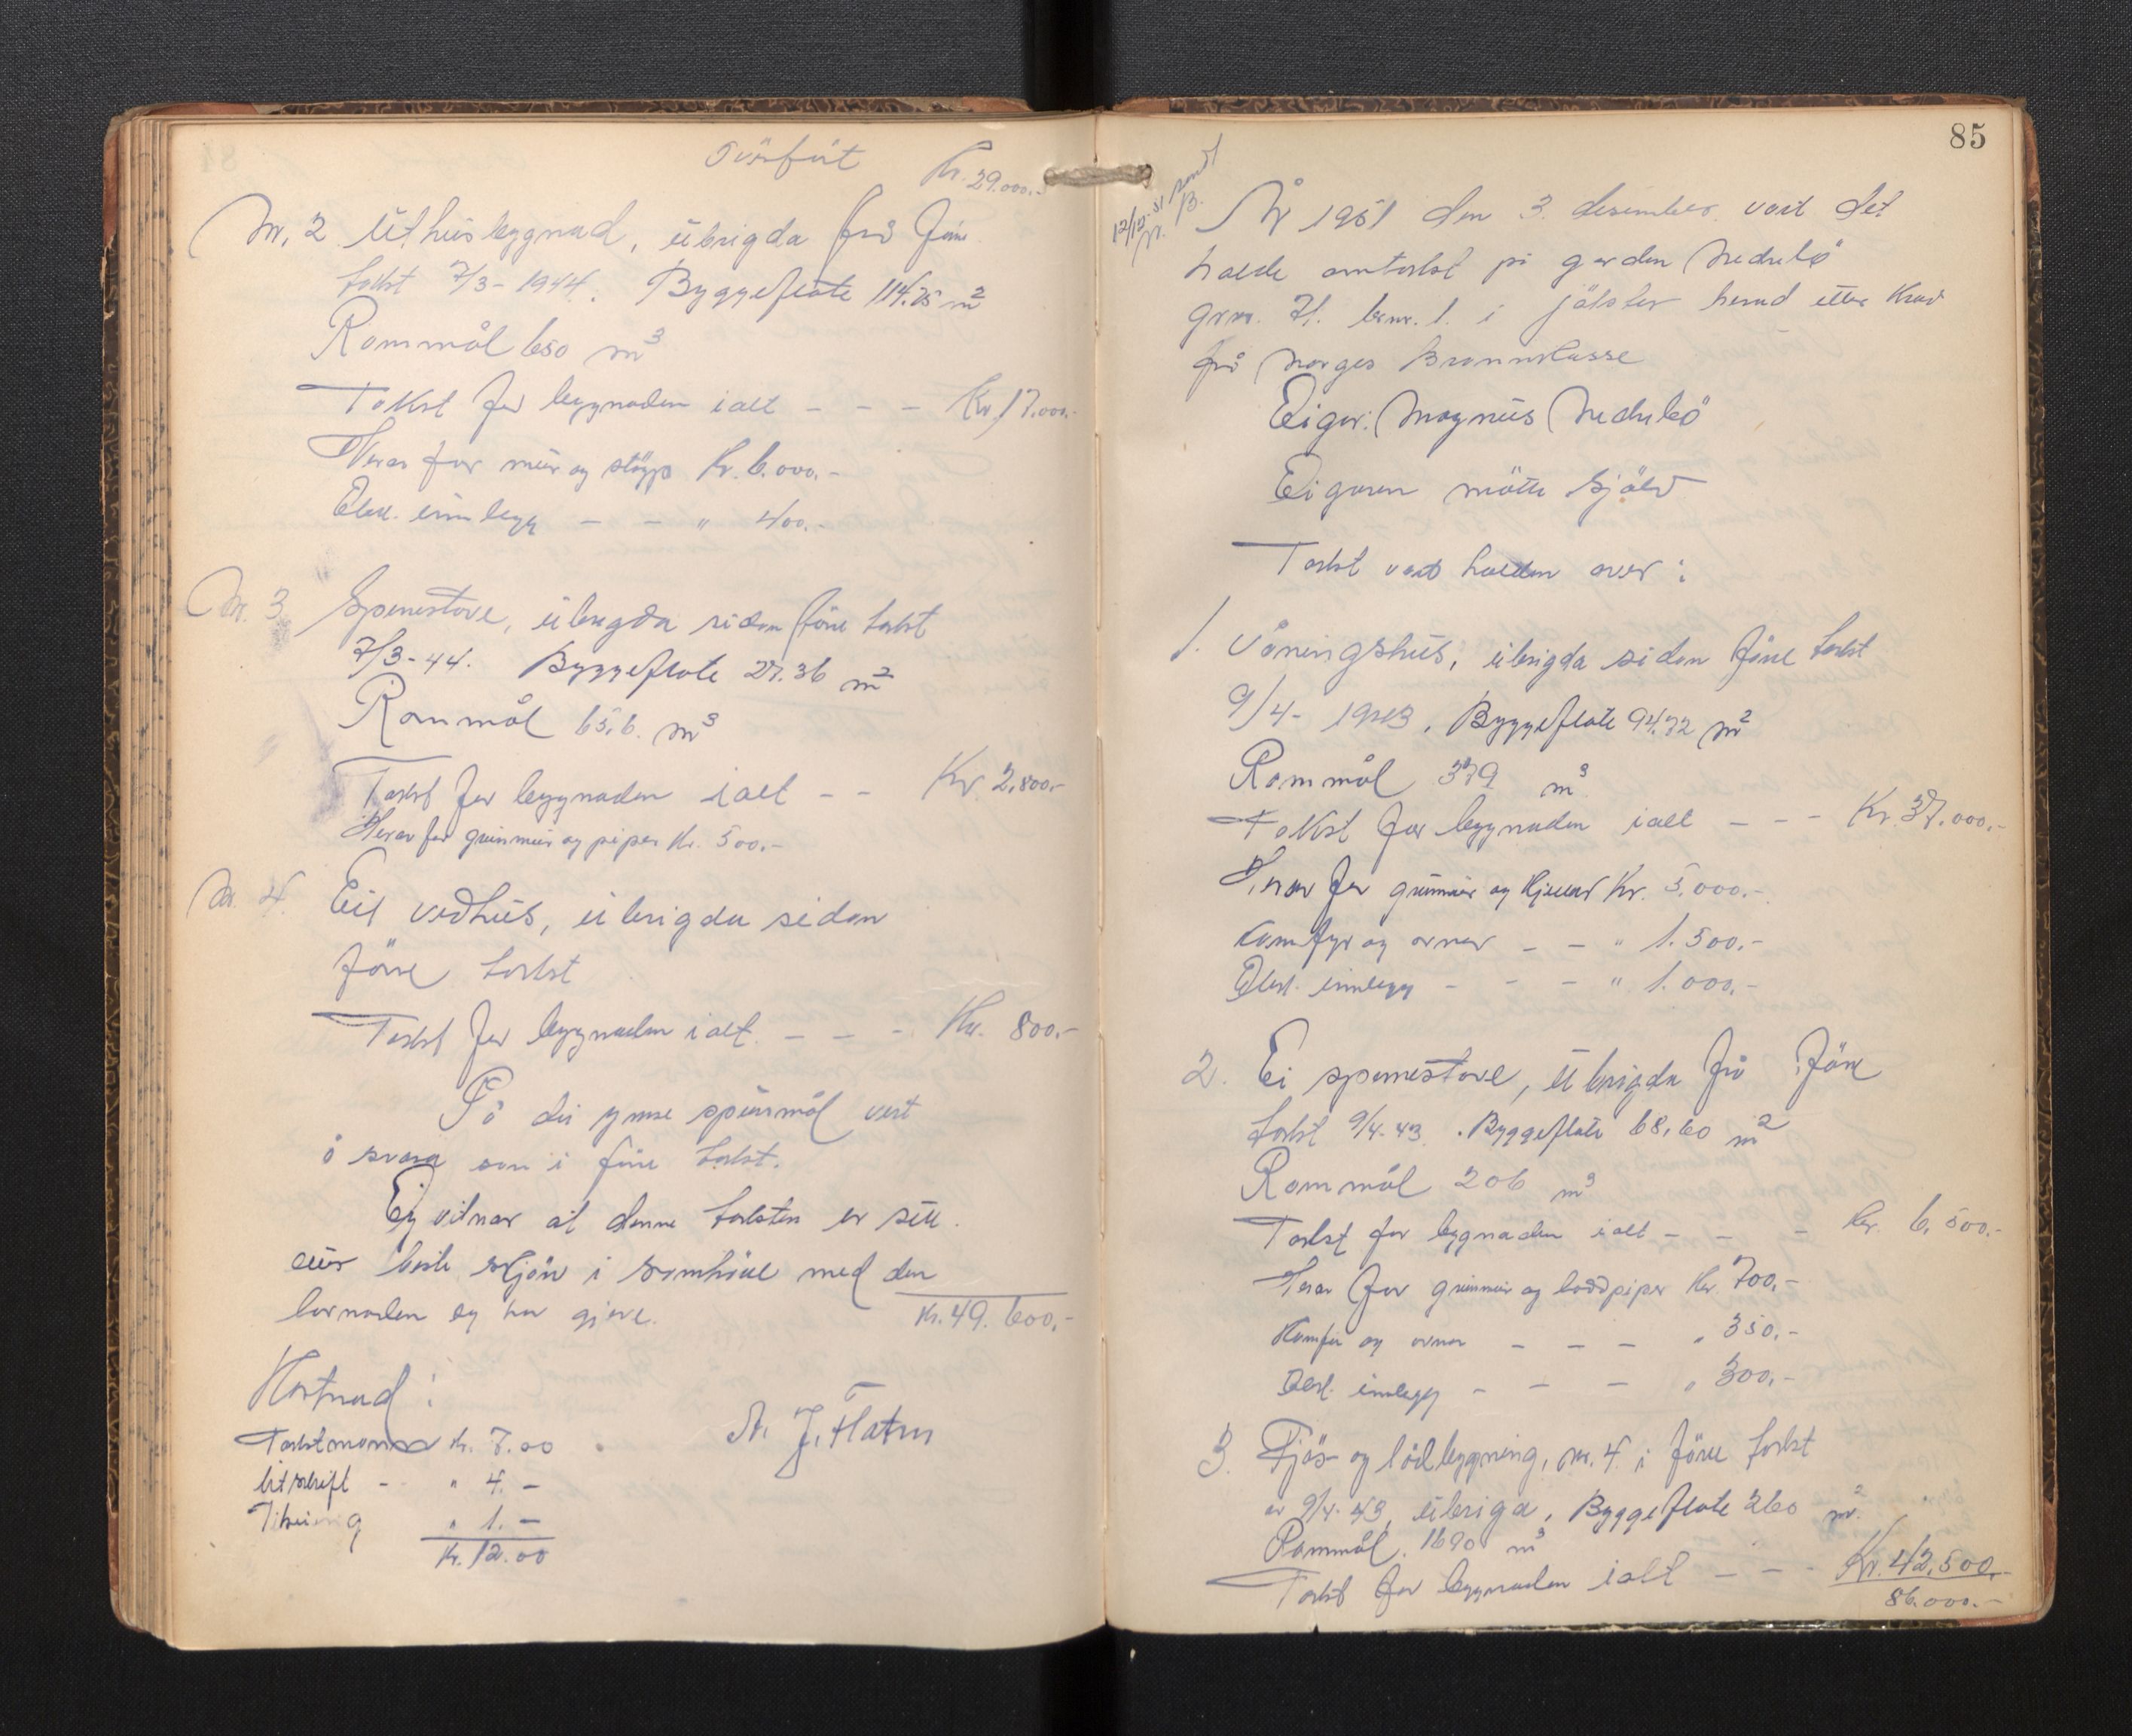 Överfört Kr. 29.000.-
Nr. 2 Uthusbygnad, ubrigda frå före
takst 7/3-1944. Byggeflate 114.75 m²
Rommål 650 m³
Takst for bygnaden ialt - - - Kr. 17.000.-
Herav for mur og støyp Kr. 6.000.-
Elek. innlegg - - " 400.-
Nr. 3 Spenestove, ubrigda sidan före takst
7/3-44. Byggeflate 27.36 m²
Rommål 65,6. m³
Takst for bygnaden ialt - - Kr 2,800.-
Herav for grunmur og piper Kr. 500.-
Nr. 4. Eit vedhus, ubrigda sidan
före takst
Takst for bygnaden ialt. - - - Kr. 800.-
På dei ymse spursmål vert
å svara som i före takst.
Eg vitnar at denne taksten er sett
etter beste skjön i samhöve med den
lovnaden eg har gjeve. Kr. 49. 600.-
Kostnad :
Takstmann Kr. 7.00
Utskrift - " 4. -
" 1. -
Kr. 12.00
A. J. Flaten
85
12/12-51 sendt
N. B.
År 1951 den 3. desember vart det
halde omtakst på garden Nedrebö
grnr. 71. brnr. 1. i Jölster herad etter krav
frå Norges Brannkasse
Eigar: Magnus Nedrebö
Eigaren mötte sjölv
Takst vart halden over :
1. Våningshus, ubrigda sidan före takst
9/4- 1943. Byggeflate 94.72 m²
Rommål 379 m³
Takst for bygnaden ialt - - - Kr. 37.000.-
Herav for grunmur og kjellar Kr. 5.000.-
Komfyr og ovnar - - " 1.500.-
Elek. innlegg - - - " 1.000.-
2. Ei spenestove, ubrigda frå före
takst 9/4-43. Byggeflate 68,60 m²
Rommål 206 m³
Takst for bygnaden ialt - - - Kr. 6,500.-
Herav for grunmur og piper Kr. 700.-
Komfyr og ovnar - - - " 350.-
Elek. innlegg - - - " 300.-
3. Fjös- og löebygning, nr. 4. i före takst
av 9/4-43, ubrigda, Byggeflate 260 m²
Rommål. 1690 m³
Takst for bygnaden ialt - - - Kr. 42,500.-
86.000.-